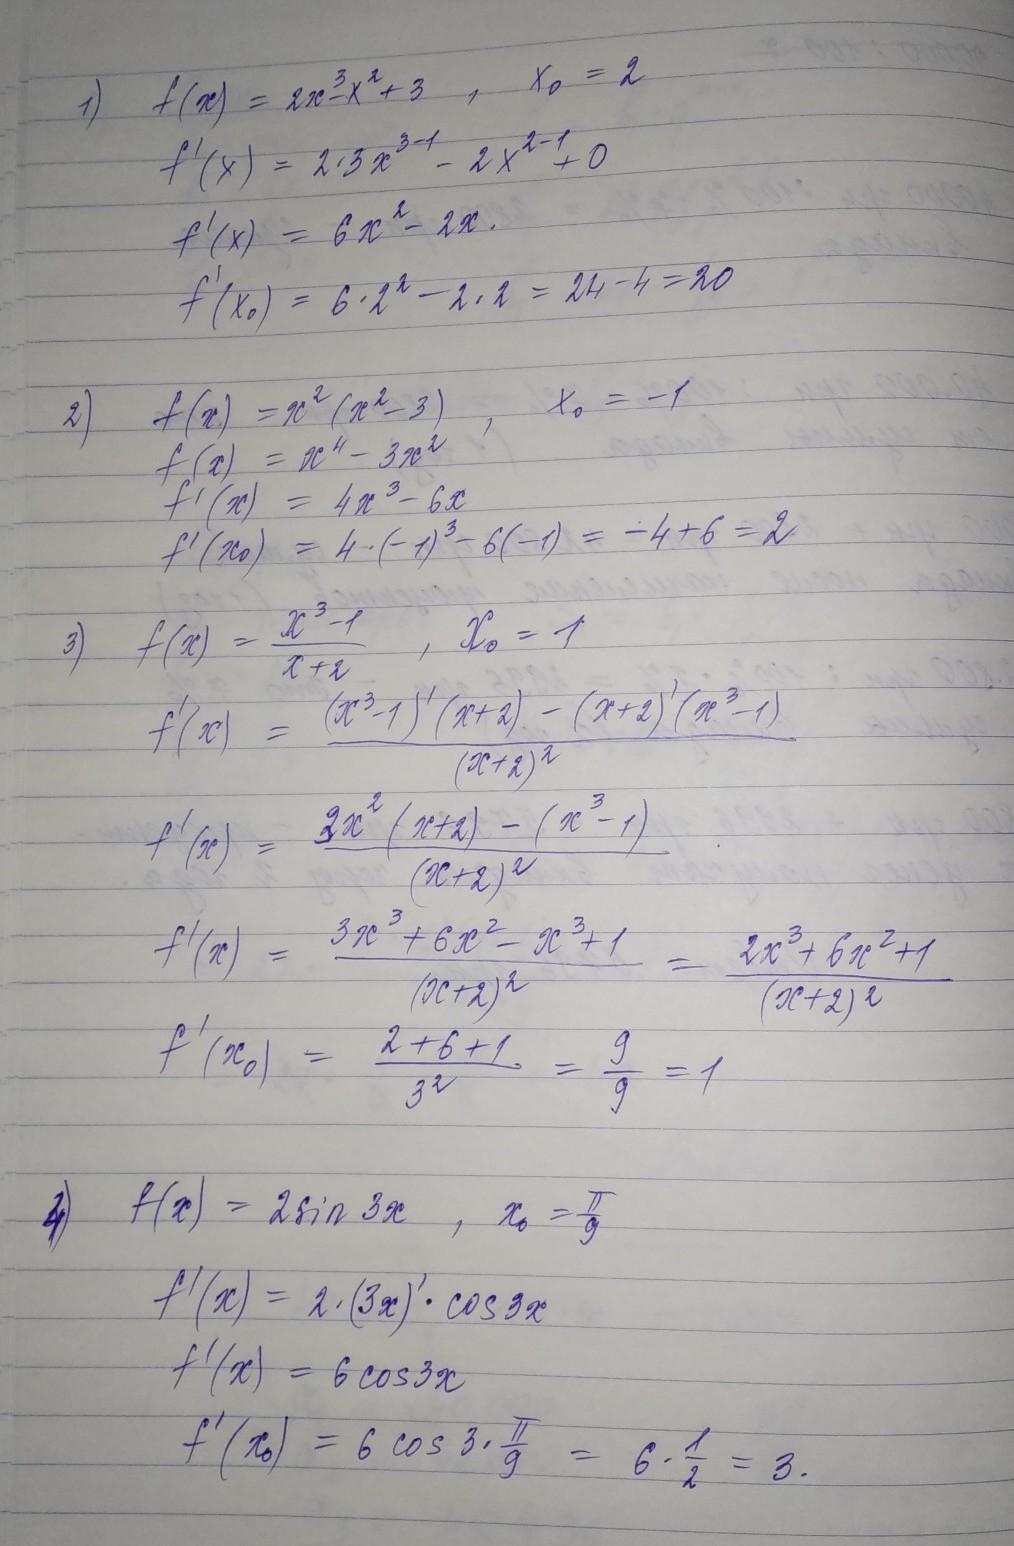 1) f(x) = 2x³-x²+3 , x₀ = 2
f'(x) = 2·3x³⁻¹ - 2x²⁻¹ + 0
f'(x) = 6x² - 2x.
f'(x₀) = 6·2² - 2·2 = 24-4 = 20
2) f(x) = x²(x²-3) , x₀ = -1
f(x) = x⁴ - 3x²
f'(x) = 4x³ - 6x
f'(x₀) = 4·(-1)³ - 6(-1) = -4+6 = 2
3) f(x) = (x³-1)/(x+2) , x₀ = 1
f'(x) = ((x³-1)'(x+2) - (x+2)'(x³-1))/(x+2)²
f'(x) = (3x²(x+2) - (x³-1))/(x+2)²
f'(x) = (3x³+6x²-x³+1)/(x+2)² = (2x³+6x²+1)/(x+2)²
f'(x₀) = (2+6+1)/3² = 9/9 = 1
4) f(x) = 2sin 3x , x₀ = π/9
f'(x) = 2·(3x)'·cos3x
f'(x) = 6cos3x
f'(x₀) = 6 cos 3·π/9 = 6·1/2 = 3.